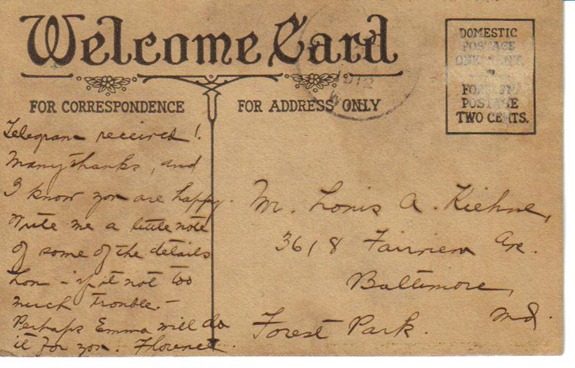 Welcome Card
DOMESTIC
POSTAGE
ONE CENT
FOREIGN
POSTAGE
TWO CENTS.
FOR CORRESPONDENCE
FOR ADDRESS ONLY
1912
Telegram received!
Many thanks, and
I know you are happy.
Write me a little note
of some of the details
hon - if it not too
much trouble. -
Perhaps Emma will do
it for you. Florence.
Mr. Louis A. Kiehne,
3618 Fairview Ave.
Baltimore,
Md.
Forest Park.